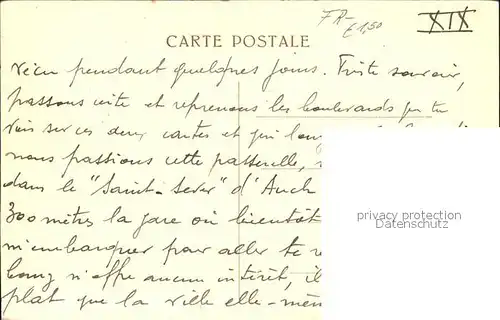 FR-
£1,50
XIX
CARTE POSTALE
vécu pendant quelques jours. Triste souvenir,
passons vite et reprenons les boulevards que tu
vois sur ces deux cartes et qui
nous passions cette passerelle,
dans le "Saint-Sever" d'Auch
300 mètres la gare où bientôt
m'embarquer pour aller te
n'offre aucun intérêt, il
plat que la ville elle-mêm
privacy protection
Datenschutz